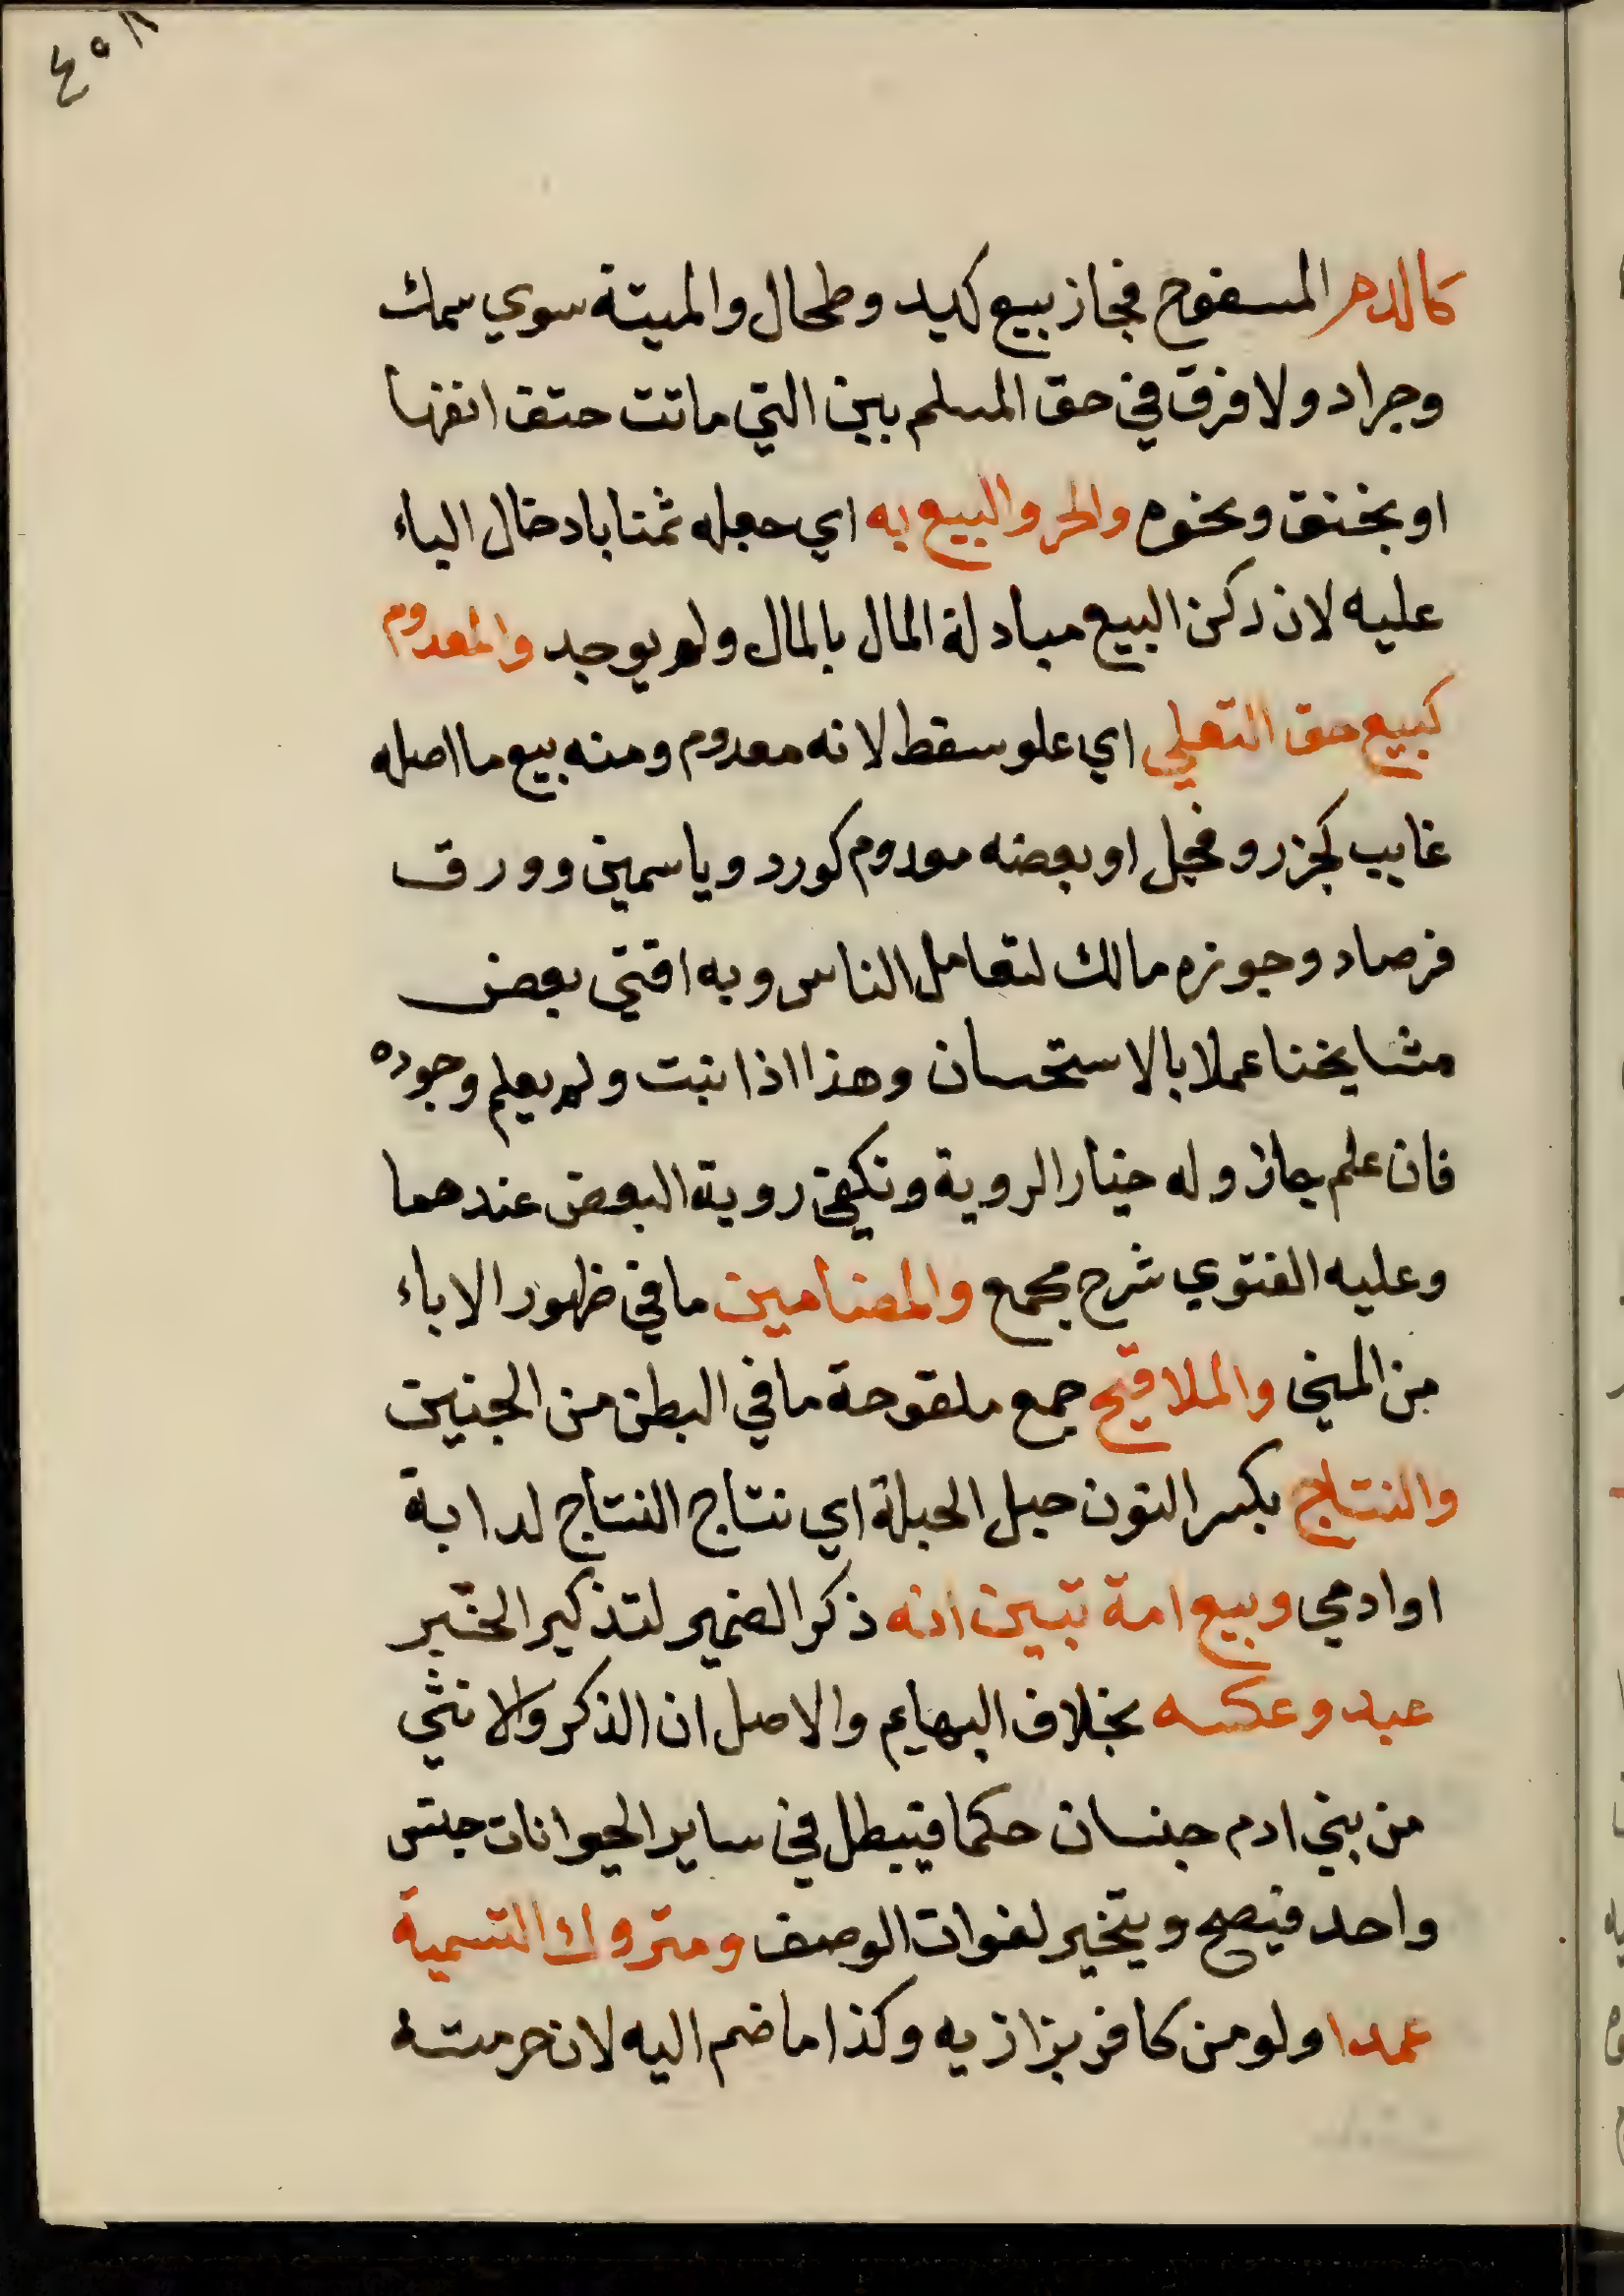 ٤٥٨
كالدم المسفوح فجاز بيع كبد وطحال والميتة سوي سمك
وجراد ولا فرق في حق المسلم بين التي ماتت حتف انفها
او بخنق ونحوه والحر والبيع به اي جعله ثمنا بادخال الباء
عليه لان ركن البيع مبادلة المال بالمال ولم يوجد والمعدوم
كبيع حق التعلي اي علو سقط لانه معدوم ومنه بيع ما اصله
غايب كجزر وفجل او بعضه معدوم كورد وياسمين وورق
فرصاد وجوزه مالك لتعامل الناس وبه افتي بعض
مشايخنا عملا بالاستحسان وهذا اذا نبت ولم يعلم وجوده
فان علم جاز وله خيار الروية وتكفي روية البعض عندهما
وعليه الفتوي شرح مجمع والمضامين ما في ظهور الاباء
من المني والملاقيح جمع ملقوحة ما في البطن من الجنين
والنتاج بكسر النون حبل الحبلة اي نتاج النتاج لدابة
او ادمي وبيع امة تبين انه ذكر الضمير لتذكير الخبر
عبد وعكسه بخلاف البهايم والاصل ان الذكر والانثي
من بني ادم جنسان حكما فيبطل في ساير الحيوانات جنس
واحد فيصح ويتخير لفوات الوصف ومتروك التسمية
عمدا ولو من كافر بزازيه وكذا ما ضم اليه لان حرمته